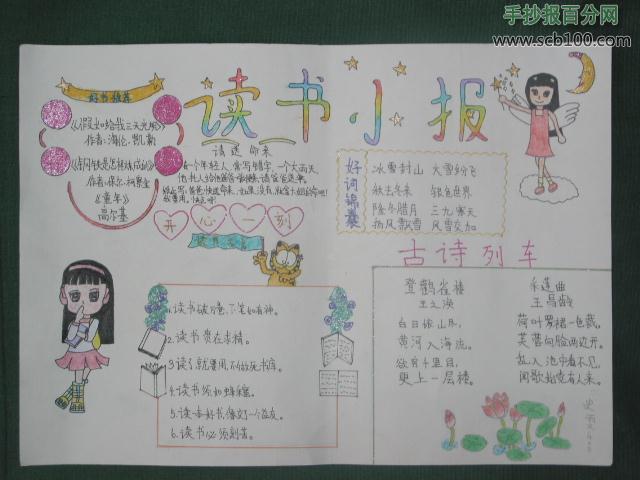 手抄报百分网
www.scb100.com
读书小报
好书推荐
《假如给我三天光明》
作者:海伦·凯勒
《钢铁是怎样炼成的》
《童年》
高尔基
请送命来
开心一刻
好词锦囊
冰雪封山 大雪纷飞
秋去冬来 银色世界
隆冬腊月 三九寒天
扬风飘雪 风雪交加
古诗列车
登鹳雀楼
王之涣
白日依山尽,
黄河入海流。
欲穷千里目,
更上一层楼。
采莲曲
王昌龄
荷叶罗裙一色裁,
芙蓉向脸两边开。
乱入池中看不见,
闻歌始觉有人来。
1.读书破万卷,下笔如有神。
2.读书贵在求精。
3.读了就要用,不做死书库。
4.读书须如蜂采蜜。
5.读一本好书,像交了一个益友。
6.读书必须刻苦。